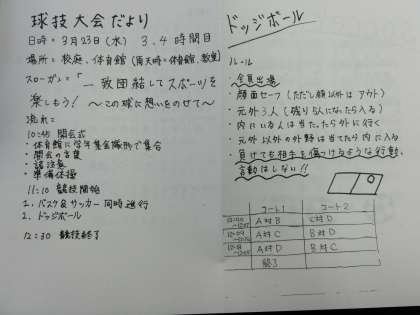 球技大会だより
日時=3月23日(水) 3.4時間目
場所=校庭、体育館(雨天時=体育館、教室)
スローガン=「一致団結してスポーツを
楽しもう! 〜この球に想いをのせて〜」
流れ=
10:45 開会式
・体育館に学年集会隊形で集合
・開会の言葉
・諸注意
・準備体操
11:10 競技開始
1. バスケ&サッカー 同時進行
2. ドッジボール
12:30 競技終了
ドッジボール
ルール
・全員出場
・顔面セーフ(ただし顔以外はアウト)
・元外3人(残り5人になったら入る)
・内にいる人は当たったら外に行く
・元外以外の外野は当てたら内に入る
・負けても相手を傷つけるような行動、
言動はしない!!
コート1 コート2
A対B C対D
A対C B対D
A対D B対C
終了